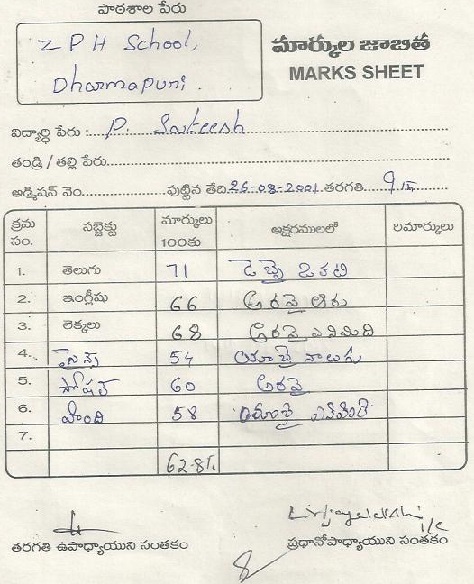 పాఠశాల పేరు
Z P H School,
Dharmapuri.
మార్కుల జాబిత
MARKS SHEET
విద్యార్థి పేరు : P. Sateesh
తండ్రి / తల్లి పేరు
అడ్మిషన్ నెం. పుట్టిన తేది 25-08-2001 తరగతి 9
క్రమ సం. సబ్జెక్టు మార్కులు 100కు అక్షరములలో లమార్కులు
1. తెలుగు 71 డెబ్బై ఒకటి
2. ఇంగ్లీషు 66 అరవై ఆరు
3. లెక్కలు 68 అరవై ఎనిమిది
4. సైన్స్ 54 యాభై నాలుగు
5. సోషల్ 60 అరవై
6. హింది 58 యాభై ఎనిమిది
7.
62-8%
తరగతి ఉపాధ్యాయుని సంతకం ప్రధానోపాధ్యాయుని సంతకం
8